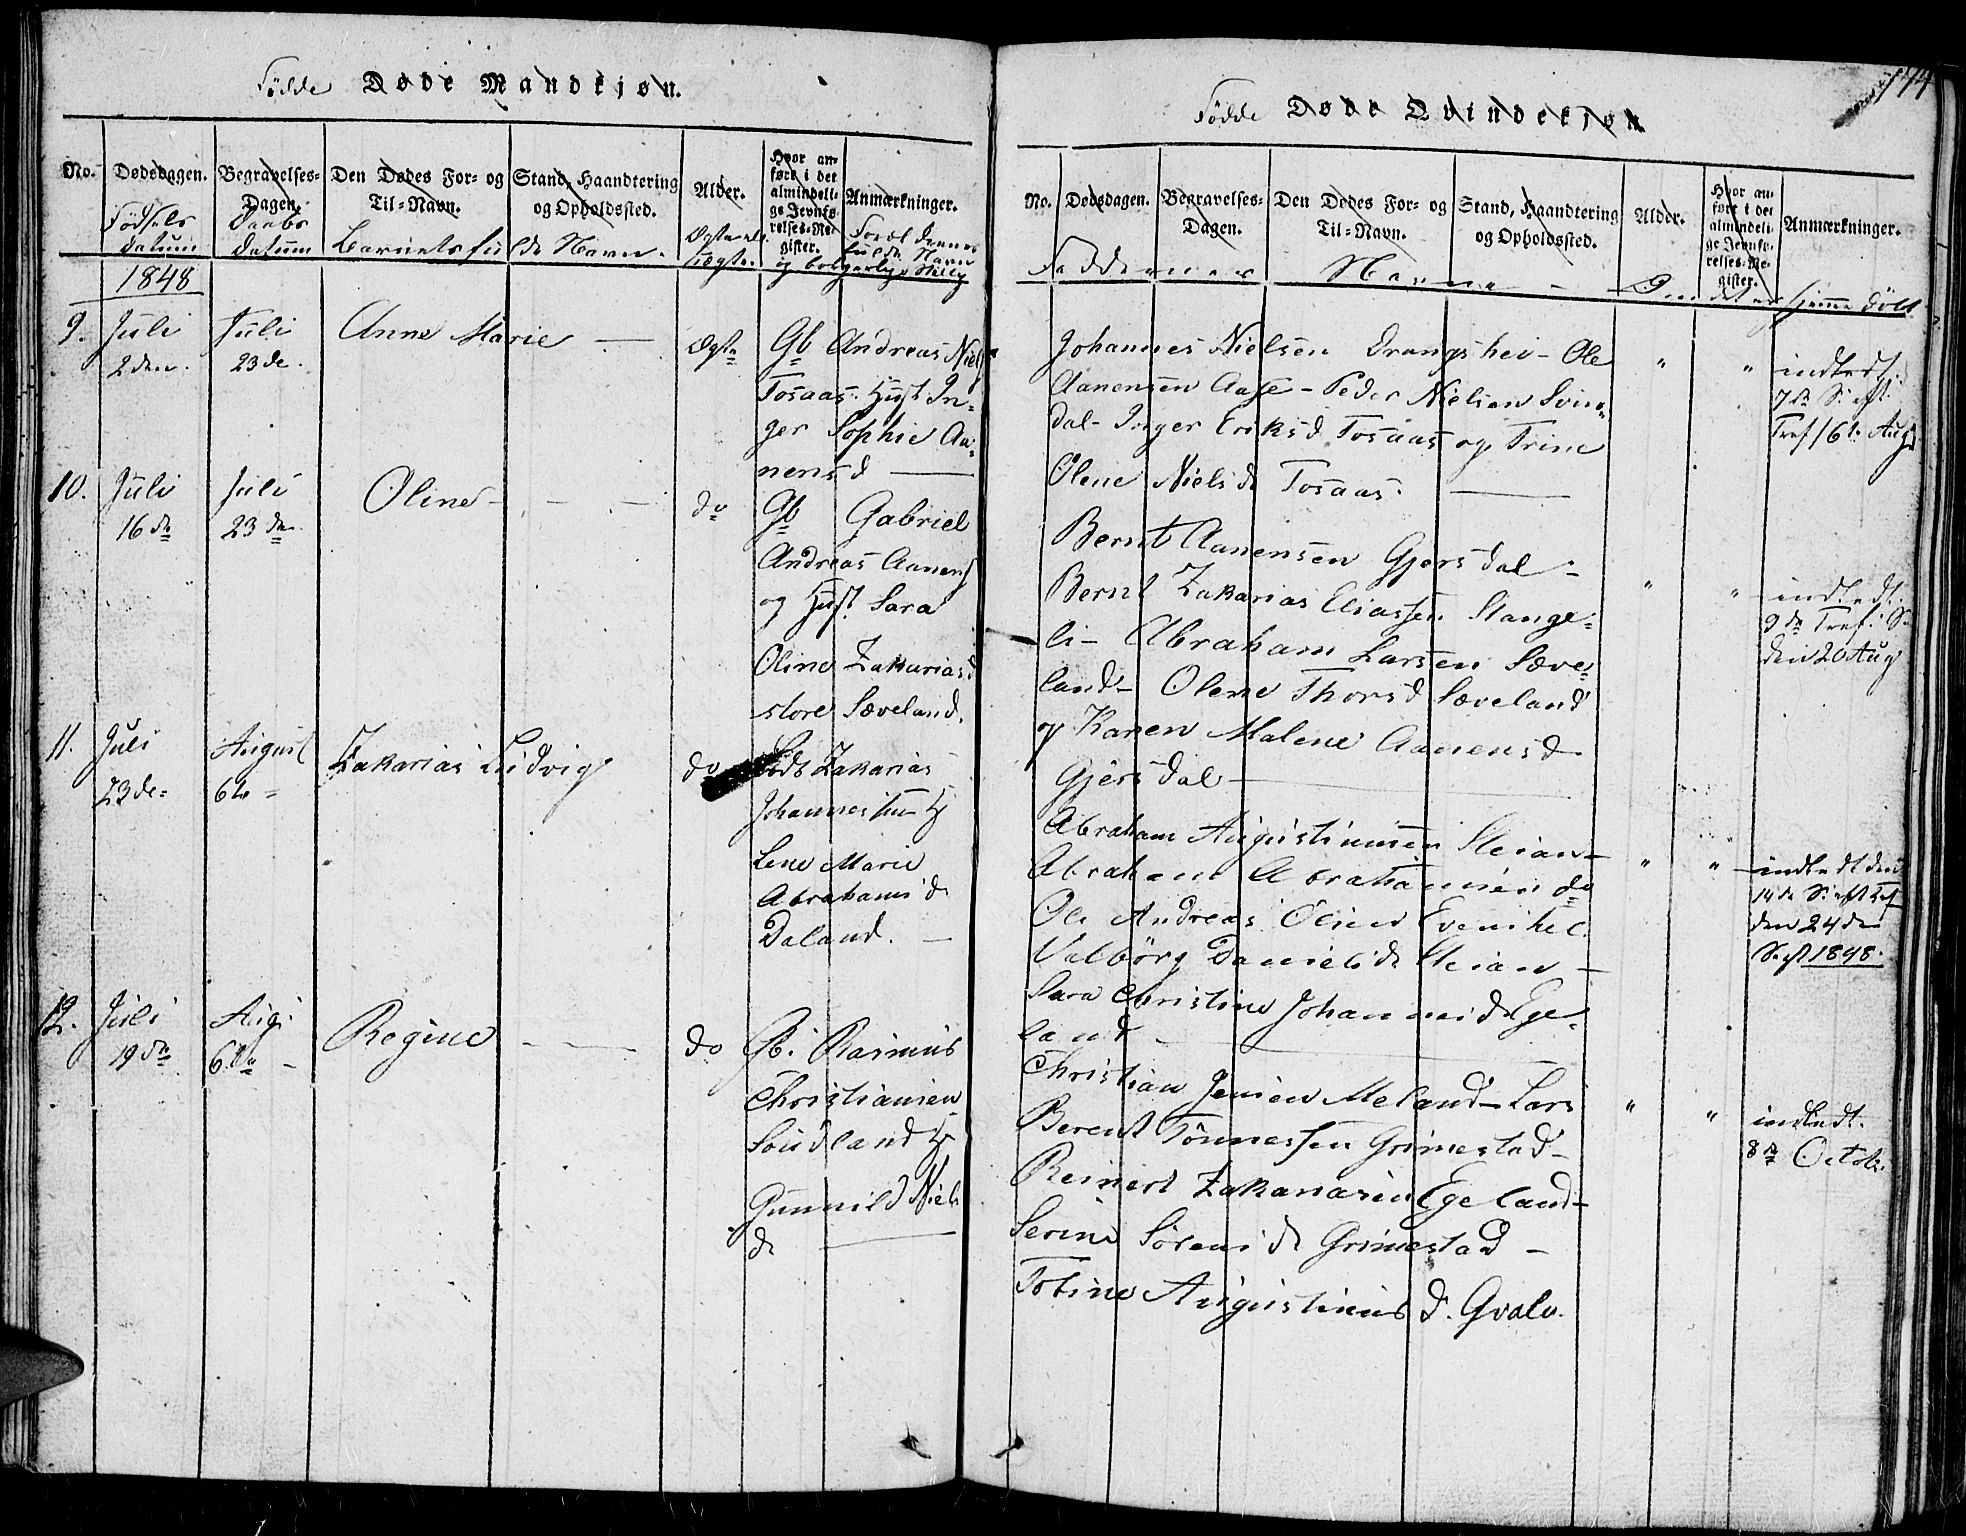 Fødde Døde Mandkjøn.
No.
Dødsdagen.
Fødsels
datum
Begravelses-
Dagen.
Daabs
datum
Den Dødes For- og
Til-Navn.
Stand, Haandtering
og Opholdssted.
Barnets fulde Navn.
Alder.
Ægte el.
uægte.
Hvor an-
ført i det
almindeli-
ge Jevnfø-
relses-Re-
gister.
Anmærkninger.
Forældrenes
fulde Navn
og borgerlige Stillg
1848
9. Juli
2den.
Juli
23de.
Anne Marie —
Ægte
Gb Andreas Niels
Tosaas. Hust In-
ger Sophie Aa-
nensd —
10. Juli
16de
Juli
23de.
Oline - - -
do
Gb Gabriel
Andreas Aanens
og Hust. Sara
Oline Zakariasd
store Sæveland.
11. Juli
23de
August
6te
Zakarias Ludvig
do
Zakarias
Johannesen H
Lene Marie
Abrahamsd
Daland. —
12. Juli
19de
Aug.
6te -
Regine - —
do
Gb. Rasmus
Christiansen
Soudland H
Gunnild Niels
d —
144
Fødde Døde Qvindekjøn
No.
Dødsdagen.
Begravelses-
Dagen.
Den Dødes For- og
Til-Navn.
Stand, Haandtering
og Opholdssted.
Alder.
Hvor an-
ført i det
almindeli-
ge Jevnfø-
relses-Re-
gister.
Anmærkninger.
Faddernes Navne - - Om det er hjemme døbt
Johannes Nielsen Drangshei - Ole
Aanensen Aase - Peder Nielsen Svin-
dal - Inger Eriksd Tosaas og Trine
Olene Nielsd Tosaas. —
" " indledt.
7de S. eft.
Tref / 6te Aug
Bernt Aanensen Gjersdal -
Bernt Zakarias Eliassen Stange-
li - Abraham Larsen Sæve-
land - Olene Thorsd Sæveland
og Karen Malene Aanensd
Gjersdal —
" " indledt.
9de Tref. S.
den 20 Aug
Abraham Augustinussen Steian -
Abraham Abrahamsen do
Ole Andreas Olsen
Valborg Danielsd Steian -
Sara Christine Johannesd Ege-
land - —
" " indledt den
14de S. eft Tref
den 24de
Sept 1848.
Christian Jensen Meland - Lars
Berent Tønnessen Grimestad -
Reinert Zakariasen Egeland -
Serine Sørensd Grimestad -
Tobine Augustinus d. Gvale.
" " indledt.
8de Octob.